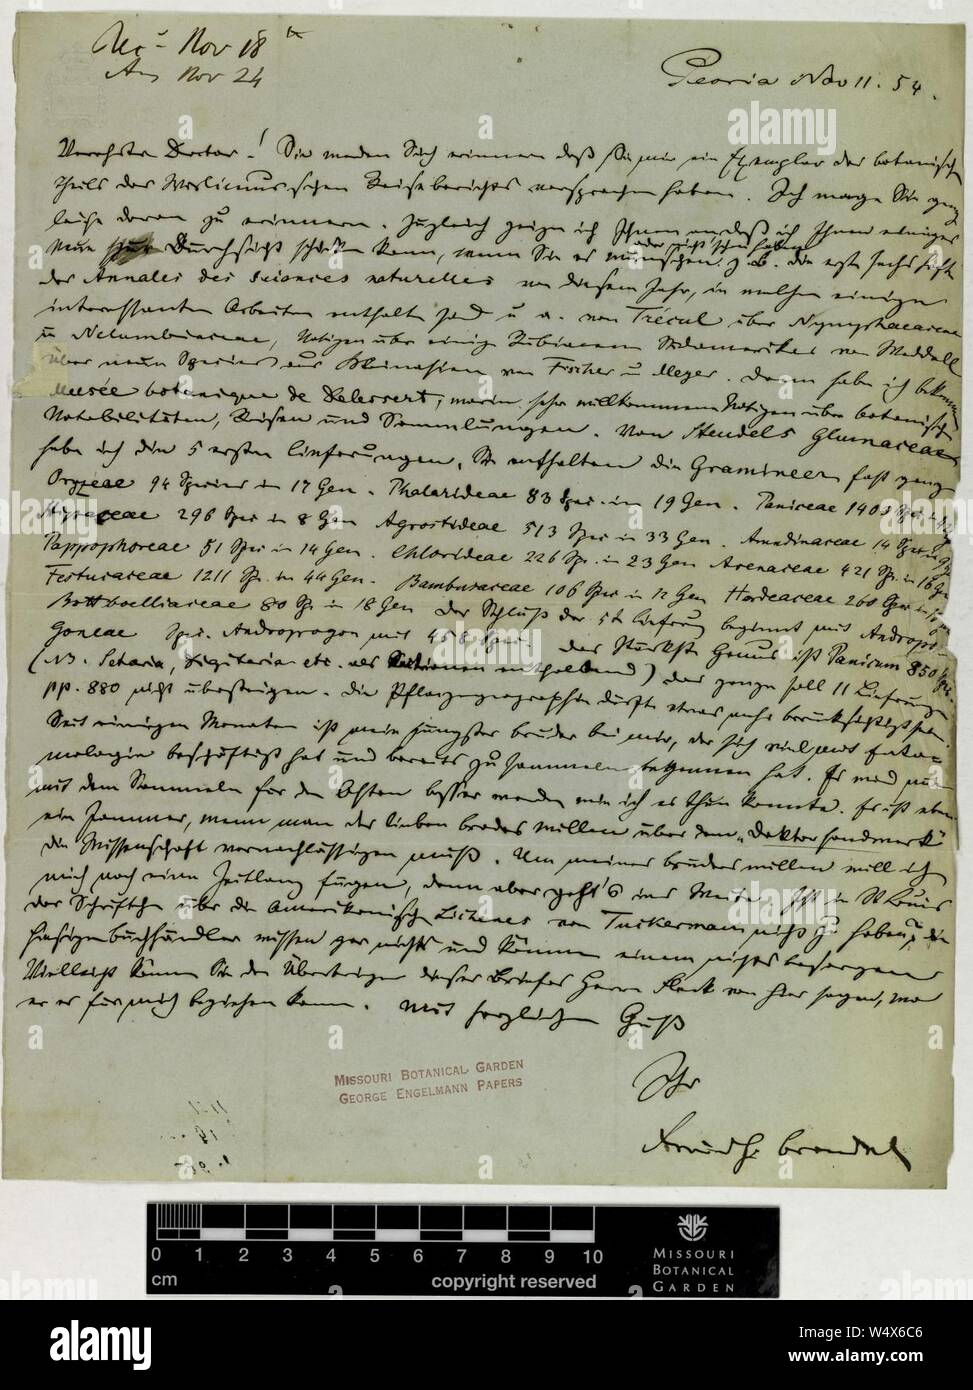 Rec. Nov 18th
Ans Nov 24
Peoria Nov 11. 54.
Verehrter Doctor! Sie werden Sich erinnern daß Sie mir ein Exemplar des botanischen
Theils des Wislicenus'schen Reiseberichts versprochen haben. Ich wage Sie ganz
leise daran zu erinnern. Zugleich zeige ich Ihnen an, daß ich Ihnen einiges
Neue zur Durchsicht schicken kann, wenn Sie es wünschen oder nicht schon haben z. B. die erst sechs Heft
der Annales des Sciences naturelles von diesem Jahr, in welchen einige
interessanten Arbeiten enthalten sind u. a. von Trécul über Nymphaeaceae
u Nelumbiaceae, Notizen über einige Rubiaceen Südamerikas von Weddell
über neue Species aus Kleinasien von Fischer u Meyer. Dann habe ich bekommen
Musée botanique de Delessert, worin sehr willkommene Notizen über botanische
Notabilitäten, Reisen und Sammlungen. Von Steudels Glumaceae
habe ich die 5 ersten Lieferungen, Sie enthalten die Gramineen fast ganz
Oryzeae 94 Species in 17 Gen. Phalarideae 83 Spec. in 19 Gen. Paniceae 1403 Spec in
296 Spec in 8 Gen Agrostideae 513 Spec in 33 Gen. Arundinaceae 14 Spec in
Pappophoreae 51 Spec in 14 Gen. Chlorideae 226 Sp. in 23 Gen Avenaceae 421 Sp. in 16 Gen
Festucaceae 1211 Sp. in 44 Gen. Bambusaceae 106 Spec in 12 Gen Hordeaceae 260 Spec in
Rottboelliaceae 80 Sp. in 18 Gen Der Schluß der 5t Lieferung beginnt mit Andropo-
goneae Spec. Andropogon mit 458 Spec. Das Stärkste Genus ist Panicum 850 Spec.
(NB. Setaria, Digitaria etc. als Sectionen enthaltend) Das ganze soll 11 Lieferungen
pp. 880 nicht übersteigen. Die Pflanzengeographie dürfte etwas mehr berücksichtigt sein.
Seit einigen Monaten ist mein jüngster Bruder bei mir, der sich viel mit Ento-
mologie beschäftigt hat und bereits zu sammeln begonnen hat. Er wird nun
mit dem Sammeln für den Osten besser werden wie ich es thun konnte. Es ist eben
ein Jammer, wenn man des lieben Brodes willen über dem „Doktorhandwerk“
die Wissenschaft vernachlässigen muß. Um meines Bruders willen will ich
mich noch eine Zeitlang fügen, dann aber geht's ins Weite. Ist in St Louis
das Schriftchen über die Amerikanischen Lichenes von Tuckerman nicht zu haben?, die
hiesigen Buchhändler wissen gar nichts und können einem nichts besorgen
Vielleicht können Sie dem Überbringer dieses Briefes Herrn Fleck von hier sagen, wo
er es für mich beziehen kann. Mit herzlichem Gruß
Ihr
Friedh. Brendel
MISSOURI BOTANICAL GARDEN
GEORGE ENGELMANN PAPERS
0 1 2 3 4 5 6 7 8 9 10
cm copyright reserved
MISSOURI
BOTANICAL
GARDEN
alamy
Image ID: W4X6C6
www.alamy.com